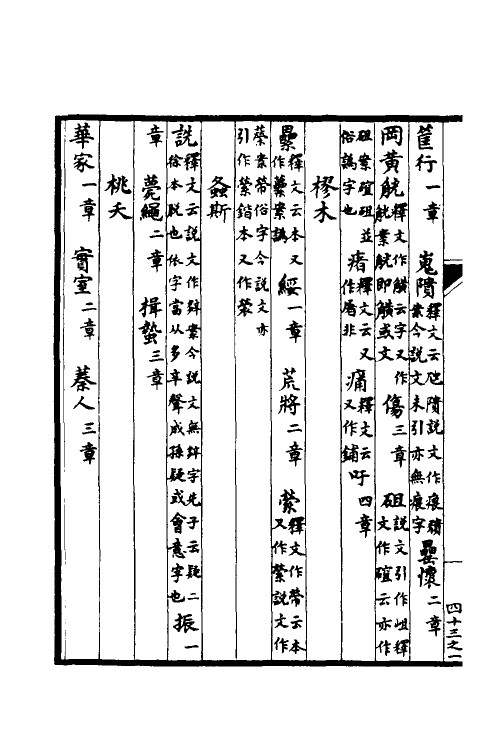 筐行一章 嵬隤釋文云虺隤說文作㾯穨
案今說文未引亦無㾯字 罍懷二章
岡黃觥釋文作觵云字又作
觥案觥即觵或文 傷三章 砠說文引作岨釋
文作碹云亦作
砠案碹砠並
俗譌字也 瘏釋文云又
作屠非 痡釋文云
又作鋪 吁四章
樛木
纍釋文云本又
作虆案譌 綏一章 荒將二章 縈釋文作帶云本
又作縈說文作
案帶俗字今說文亦
引作縈鍇本又作
螽斯
詵釋文云說文作案今說文無字先子云疑二
徐本脫也依字當从多辛聲成孫疑或會意字也 振一
章 薨繩二章 揖蟄三章
桃夭
華家一章 實室二章 蓁人三章
四十三之一